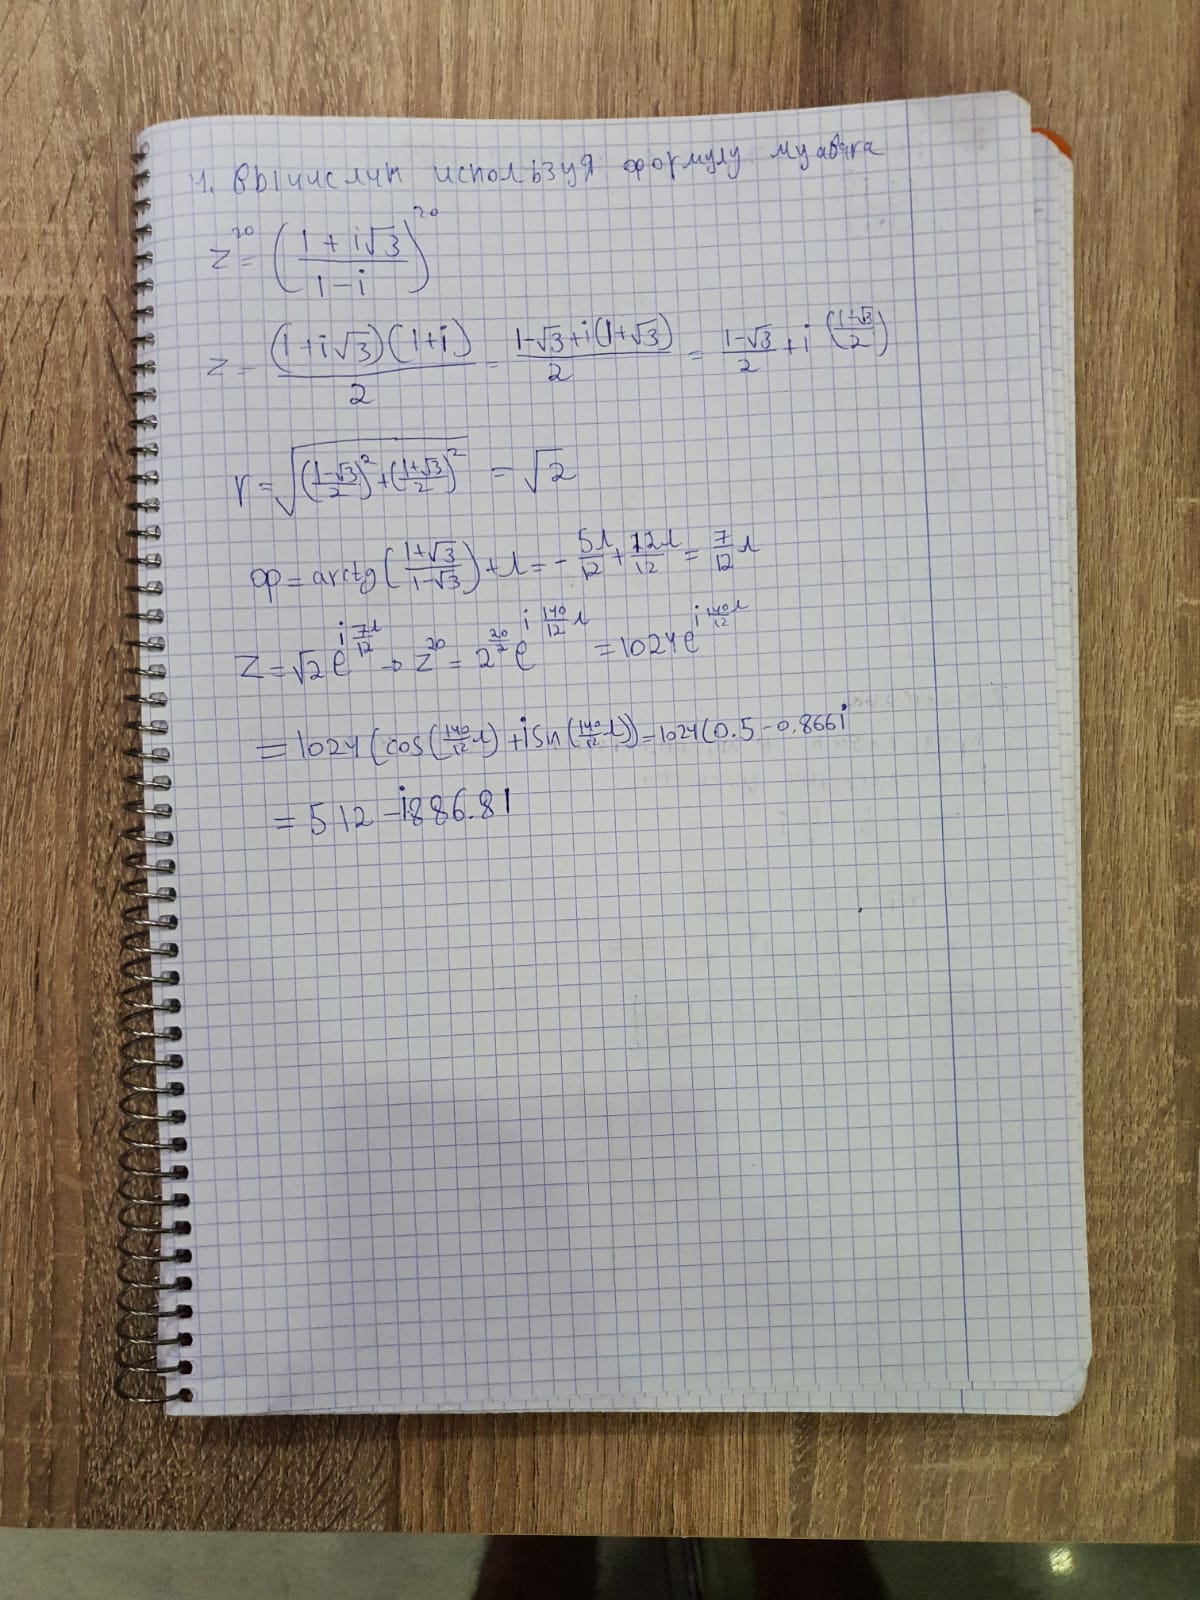 1. вычислить используя формулу муавра
z^20 = ((1+i√3)/(1-i))^20
z = ((1+i√3)(1+i))/2 = (1-√3+i(1+√3))/2 = (1-√3)/2 + i((1+√3)/2)
r = √(((1-√3)/2)^2+((1+√3)/2)^2) = √2
φ = arctg((1+√3)/(1-√3)) + π = -5π/12 + 12π/12 = 7/12 π
z = √2 e^(i 7π/12) → z^20 = 2^(20/2) e^(i 140/12 π) = 1024 e^(i 140/12 π)
= 1024(cos(140/12 π) + i sin(140/12 π)) = 1024(0.5 - 0.866i
= 512 - i886.81